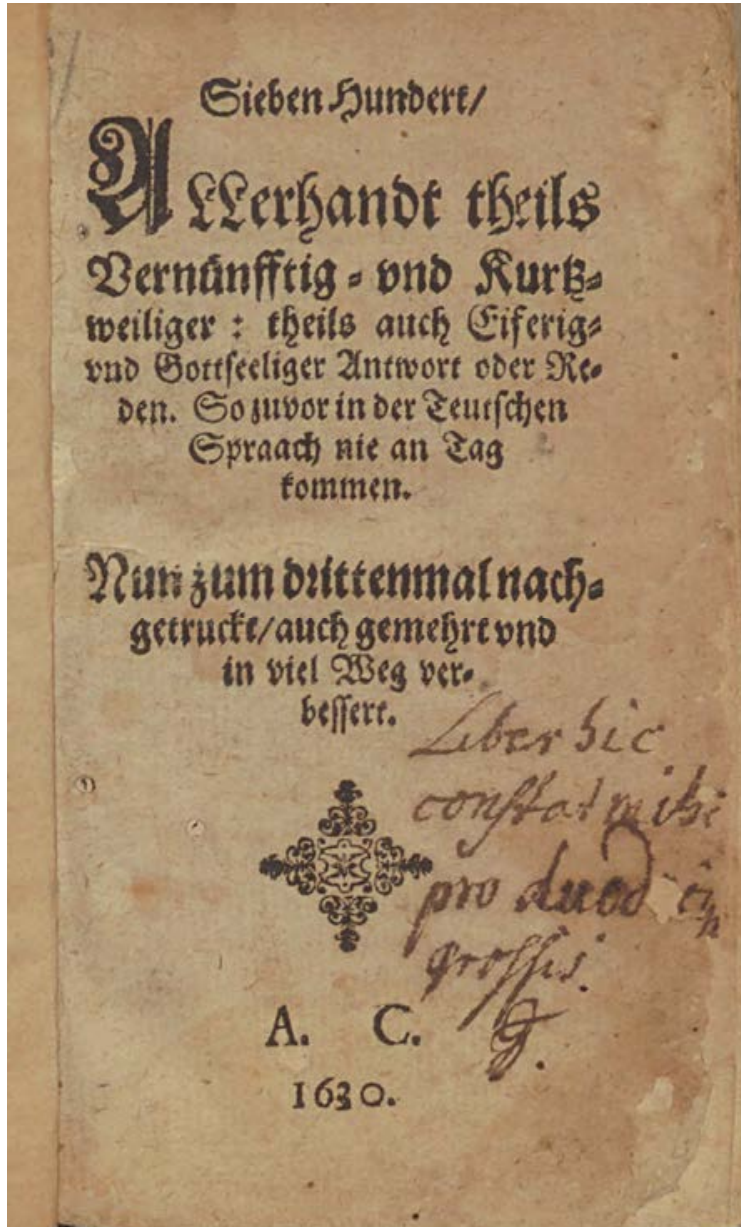 Sieben Hundert/
ALLerhandt theils
Vernünfftig- vnd Kurtz-
weiliger: theils auch Eiferig-
vnd Gottseeliger Antwort oder Re-
den. So zuvor in der Teutschen
Spraach nie an Tag
kommen.
Nun zum drittenmal nach-
getruckt/auch gemehrt vnd
in viel Weg ver-
bessert.
Liber hic
constat mihi
pro duod
grossis.
A. C.
1630.